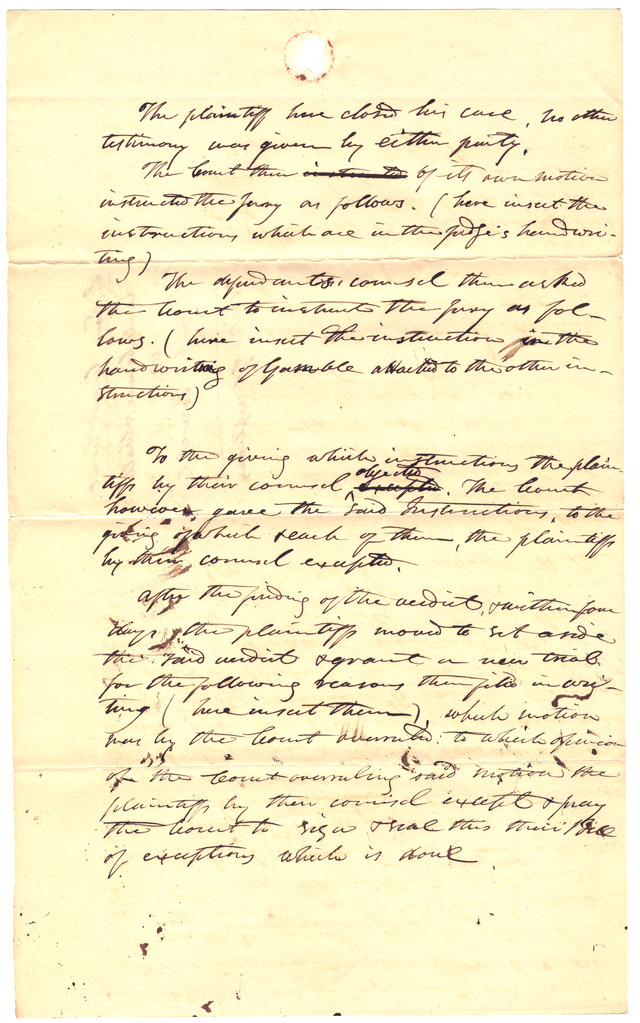 The plaintiff here closed his case, no other
testimony was given by either party.
The Court then instructed of its own motion
instructed the Jury as follows. (here insert the
instructions which are in the judge's handwri-
ting)
The defendants, counsel then asked
the Court to instruct the Jury as fol-
lows. (here insert the instruction in the
handwriting of Gamble attached to the other in-
structions)
To the giving which instructions the plain-
tiffs by their counsel excepted objected. The Court
however, gave the said Instructions, to the
giving of which & each of them, the plaintiffs
by their counsel excepted.
After the finding of the verdict, & within four
days, the plaintiffs moved to set aside
the said verdict & grant a new trial
for the following reasons then filed in wri-
ting (here insert them), which motion
was by the Court overruled: to which opinion
of the Court overruling said motion the
plaintiffs by their counsel except & pray
the Court to sign & seal this their Bill
of exceptions which is done